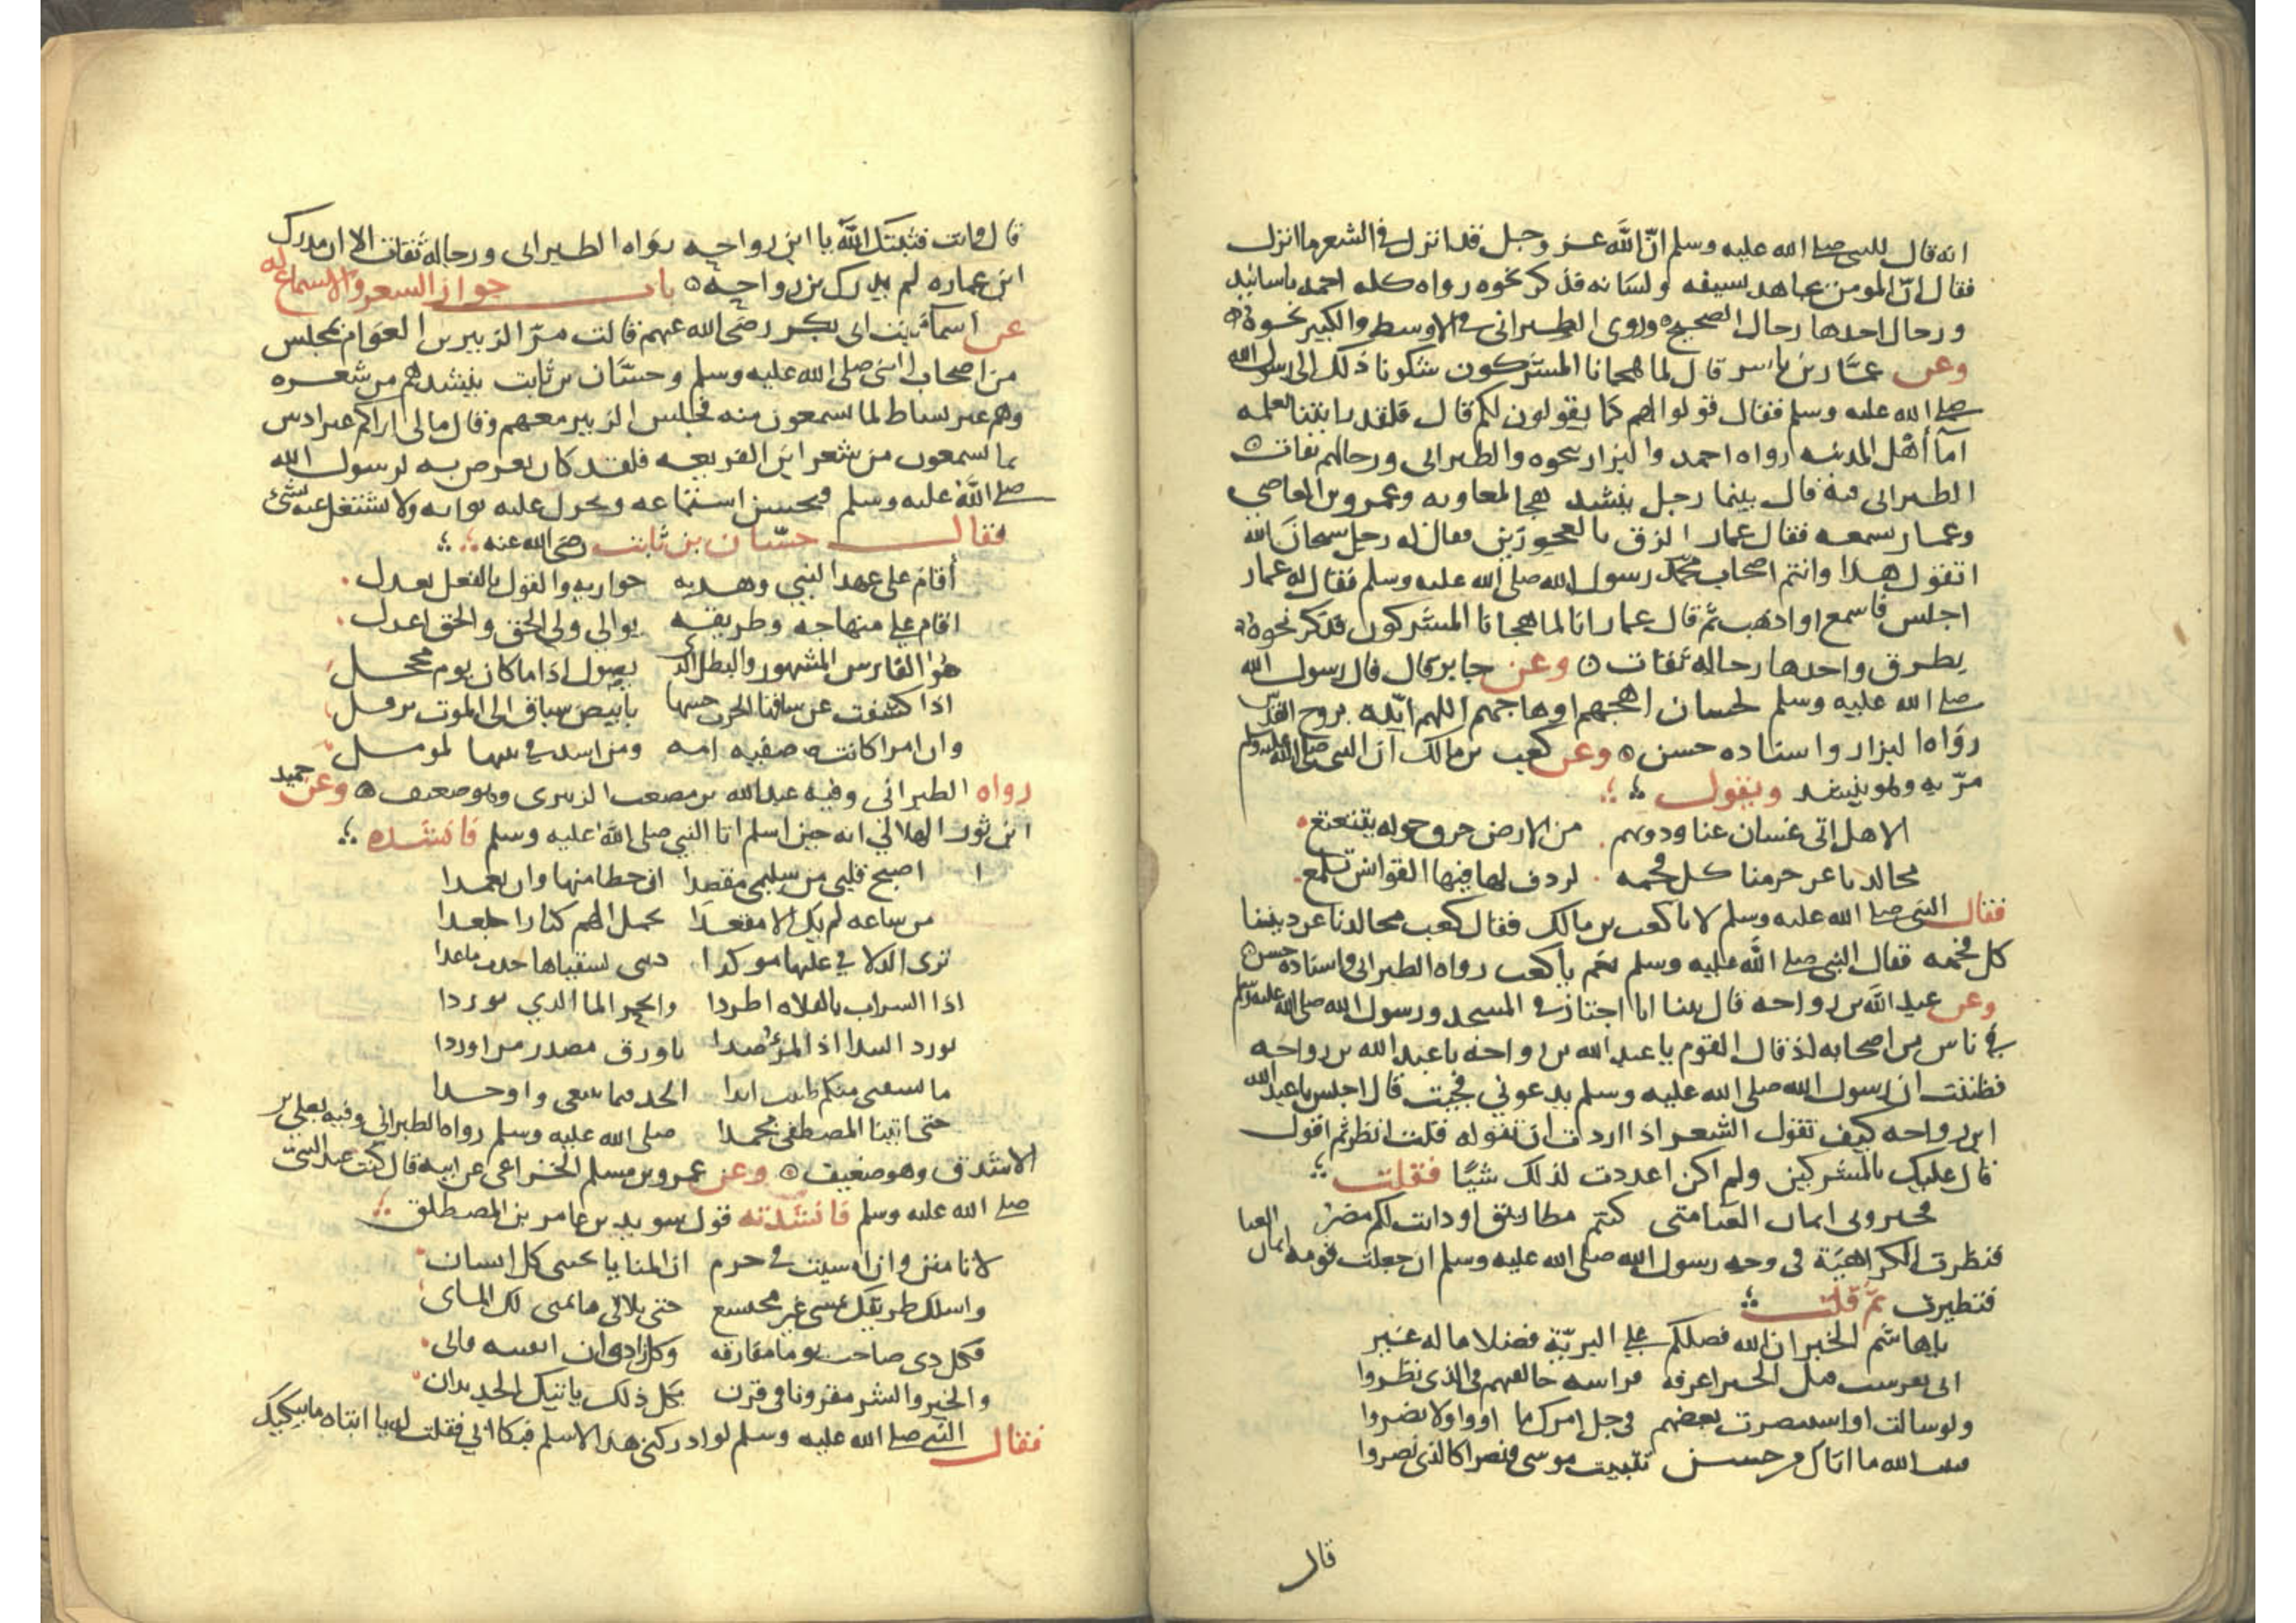 انه قال للنبي صلى الله عليه وسلم انّ الله عز وجل قد انزل في الشعر ما انزل
فقال انّ المومن يجاهد بسيفه ولسانه فذكر نحوه رواه كله احمد باسانيد
ورجال احدها رجال الصحيح وروى الطبراني في الاوسط والكبير نحوه
وعن عمّار بن ياسر قال لما هجانا المشركون شكونا ذلك الى رسول الله
صلى الله عليه وسلم فقال قولوا لهم كما يقولون لكم قال فلقد رايتنا نعلمه
اماء أهل المدينه رواه احمد والبزار بنحوه والطبراني ورجالهم ثقات
الطبراني فيه قال بينما رجل ينشد هجا لمعاويه وعمرو بن العاصي
وعمار يسمعه فقال عمار الزق بالعجوزين فقال له رجل سبحان الله
اتقول هذا وانتم اصحاب محمّد رسول الله صلى الله عليه وسلم فقال له عمار
اجلس فاسمع او اذهب ثم قال عمار انا لما هجانا المشركون فذكر نحوه
بطرق واحدها رجاله ثقات وعن جابر قال قال رسول الله
صلى الله عليه وسلم لحسان اهجهم او هاجهم اللهم ايّده بروح القدس
رواه البزار واسناده حسن وعن كعب بن مالك ان النبي صلى الله عليه وسلم
مرّ به وهو ينشد ويقول
الا هل اتى غسان عنا ودونهم من الارض خروق حوله يتنعنع
مجالدنا عن حرمنا كل فخمه لردف لها فيها القوانس تلمع
فقال النبي صلى الله عليه وسلم لا يا كعب بن مالك فقال كعب مجالدنا عن ديننا
كل فخمه فقال النبي صلى الله عليه وسلم نعم يا كعب رواه الطبراني واسناده حسن
وعن عبد الله بن رواحه قال بينا انا اجتاز في المسجد ورسول الله صلى الله عليه وسلم
في ناس من اصحابه اذ قال القوم يا عبد الله بن رواحه يا عبد الله بن رواحه
فظننت ان رسول الله صلى الله عليه وسلم يدعوني فجيت قال اجلس يا عبد الله
ابن رواحه كيف تقول الشعر اذا اردت ان تقوله قلت انظر ثم اقول
قال عليك بالمشركين ولم اكن اعددت لذلك شيًا فقلت
فخبروني اثمان العبا متى كنتم مطاريق او دانت لكم مضر
فنظرت الكراهية في وجه رسول الله صلى الله عليه وسلم ان جعلت قومه اثمان العبا
فنظرت ثم قلت
يا هاشم الخير ان الله فضلكم على البريّة فضلا ما له غير
اني تفرست فيك الخير اعرفه فراسه خالفهم في الذي نظروا
ولو سالت او استنصرت بعضهم في جل امرك ما اووا ولا نصروا
فثبت الله ما اتاك من حسن تثبيت موسى ونصرا كالذي نصروا
قال
قال وانت فثبتك الله يا ابن رواحه رواه الطبراني ورجاله ثقات الا ان مدرك
ابن عماره لم يدرك بن رواحه باب جواز الشعر والاستماع له
عن اسما بنت ابي بكر رضى الله عنهم قالت مرّ الزبير بن العوام بمجلس
من اصحاب النبي صلى الله عليه وسلم وحسّان بن ثابت ينشدهم من شعره
وهم غير نشاط لما يسمعون منه فجلس الزبير معهم وقال ما لي اراكم غير اذنين
بما تسمعون من شعر ابن الفريعه فلقد كان يعرض به لرسول الله
صلى الله عليه وسلم فيحسن استماعه ويجزل عليه ثوابه ولا يشتغل عنه بشئ
فقال حسّان بن ثابت رضى الله عنه
أقام على عهد النبي وهديه حواريه والقول بالفعل يعدل
اقام على منهاجه وطريقه يوالي ولي الحق والحق اعدل
هو الفارس المشهور والبطل الذي يصول اذا ما كان يوم محجل
اذا كشفت عن ساقها الحرب حشها بابيض سباق الى الموت يرقل
وان امرا كانت صفيه امه ومن اسد في بيتها لمرسل
رواه الطبراني وفيه عبد الله بن مصعب الزبيري وهو ضعيف وعن حميد
ابن ثور الهلالي انه حين اسلم اتا النبي صلى الله عليه وسلم فانشده
اصبح قلبي من سليمى مقصدا ان خطا منها وان تعمدا
من ساعه لم يك الا مقعدا تحمل الهم كنازا جلعدا
ترى الدلافي عليها موكدا
اذا السراب بالفلاه اطردا وانجر الما الذي توردا
تورد السدا اذ المرصدا ناورق مصدر من اوردا
حتى اتينا المصطفى محمدا صلى الله عليه وسلم رواه الطبراني وفيه يعلى بن
الاشدق وهو ضعيف وعن عمرو بن مسلم الخزاعي عن ابيه قال كنت عند النبي
صلى الله عليه وسلم فانشدته قول سويد بن عامر بن المصطلق
لا تامنن وان امسيت في حرم ان المنايا بجنبي كل انسان
واسلك طريقك تمشي غير مختشع حتى تلاقي ما يمني لك الماني
فكل ذي صاحب يوما مفارقه وكل زاد وان ابقيته فاني
والخير والشر مقرونان في قرن بكل ذلك ياتيك الجديدان
فقال النبي صلى الله عليه وسلم لو ادركني هذا لاسلم فبكا ابي فقلت له يا ابتاه ما يبكيك